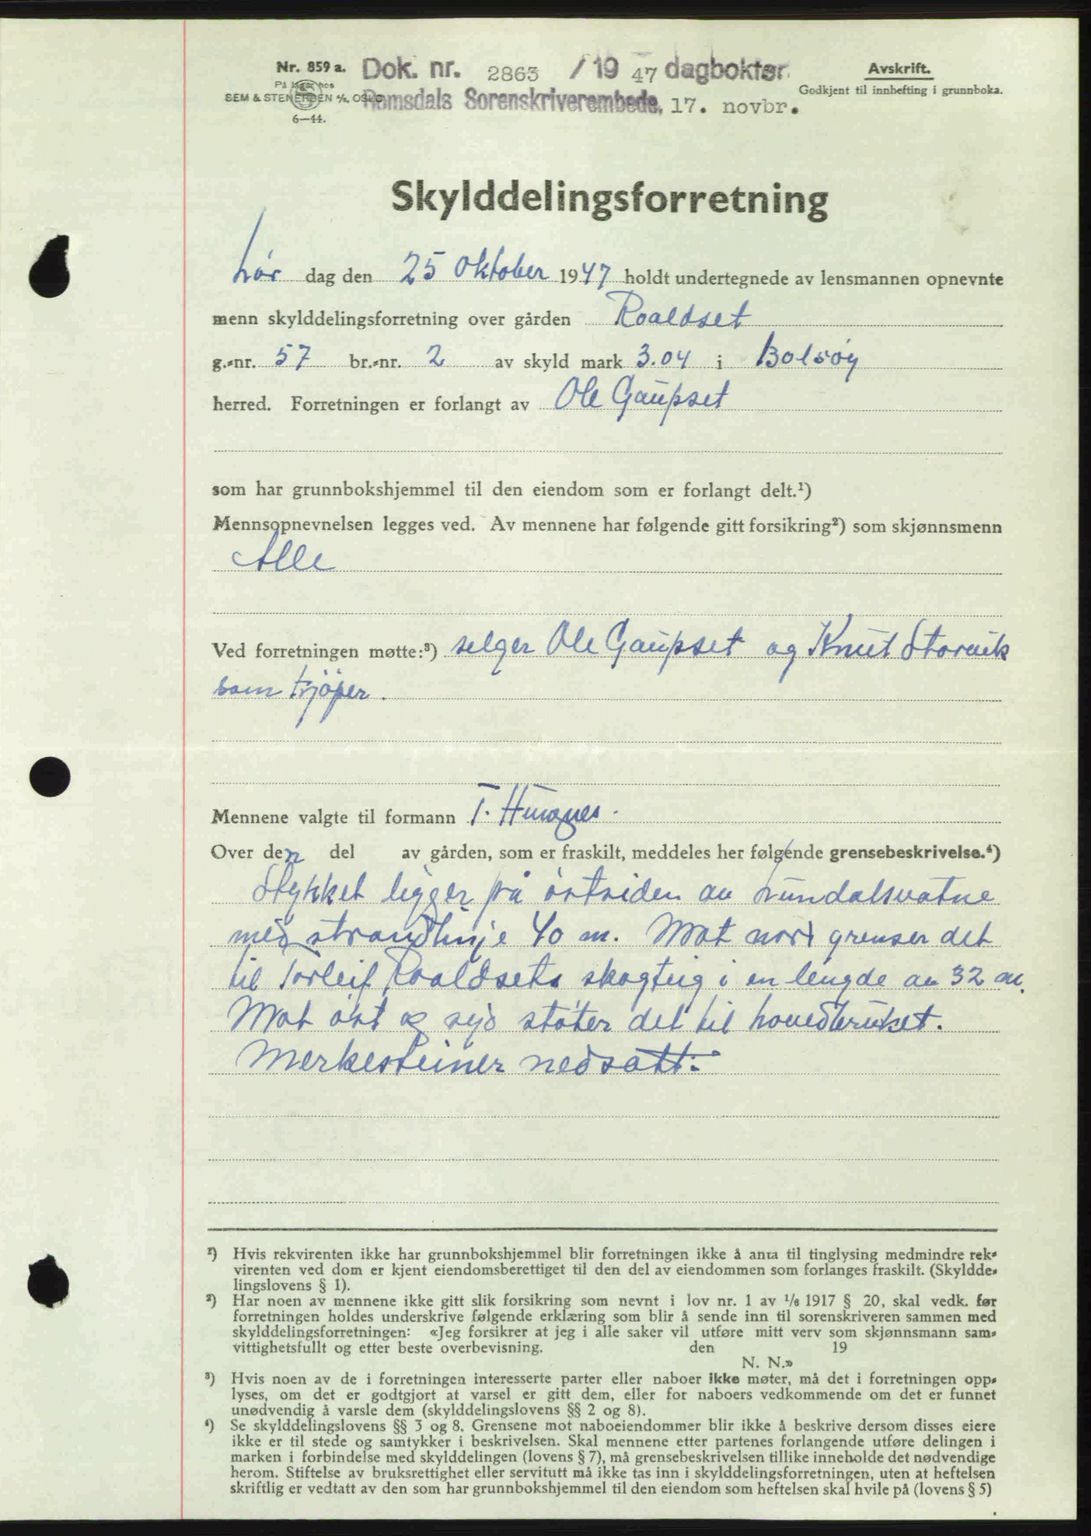 Nr. 859 a. Dok. nr. 2863 /19 47 dagbokter. Avskrift.
På lager hos Godkjent til innhefting i grunnboka.
SEM & STENERSEN A/S, OSLO Romsdals Sorenskriverembede, 17. novbr.
6—44.
Skylddelingsforretning
Lør dag den 25 Oktober 1947 holdt undertegnede av lensmannen opnevnte
menn skylddelingsforretning over gården Roaldset
g.-nr. 57 br.-nr. 2 av skyld mark 3.04 i Bolsøy
herred. Forretningen er forlangt av Ole Gaupset
som har grunnbokshjemmel til den eiendom som er forlangt delt.¹)
Mennsopnevnelsen legges ved. Av mennene har følgende gitt forsikring²) som skjønnsmenn
Alle
Ved forretningen møtte:³) selger Ole Gaupset og Knut Storvik
som kjøper.
Mennene valgte til formann T.
Over den del av gården, som er fraskilt, meddeles her følgende grensebeskrivelse.⁴)
Stykket ligger på østsiden av
med strandlinje 40 m. Mot nord grenser det
til Torleif Roaldsets skogteig i en lengde av 32 m.
Mot øst og syd støter det til hovedbruket.
Merkesteiner nedsatt:
¹) Hvis rekvirenten ikke har grunnbokshjemmel blir forretningen ikke å anta til tinglysing medmindre rek-
virenten ved dom er kjent eiendomsberettiget til den del av eiendommen som forlanges fraskilt. (Skyldde-
lingslovens § 1).
²) Har noen av mennene ikke gitt slik forsikring som nevnt i lov nr. 1 av ¹/₆ 1917 § 20, skal vedk. før
forretningen holdes underskrive følgende erklæring som blir å sende inn til sorenskriveren sammen med
skylddelingsforretningen: «Jeg forsikrer at jeg i alle saker vil utføre mitt verv som skjønnsmann sam-
vittighetsfullt og etter beste overbevisning. den 19
N. N.»
³) Hvis noen av de i forretningen interesserte parter eller naboer ikke møter, må det i forretningen opp-
lyses, om det er godtgjort at varsel er gitt dem, eller for naboers vedkommende om det er funnet
unødvendig å varsle dem (skylddelingslovens §§ 2 og 8).
⁴) Se skylddelingslovens §§ 3 og 8. Grensene mot naboeiendommer blir ikke å beskrive dersom disses eiere
ikke er til stede og samtykker i beskrivelsen. Skal mennene etter partenes forlangende utføre delingen i
marken i forbindelse med skylddelingen (lovens § 7), må grensebeskrivelsen tillike inneholde det nødvendige
herom. Stiftelse av bruksrettighet eller servitutt må ikke tas inn i skylddelingsforretningen, uten at heftelsen
skriftlig er vedtatt av den som har grunnbokshjemmel til den eiendom som heftelsen skal hvile på (lovens § 5)